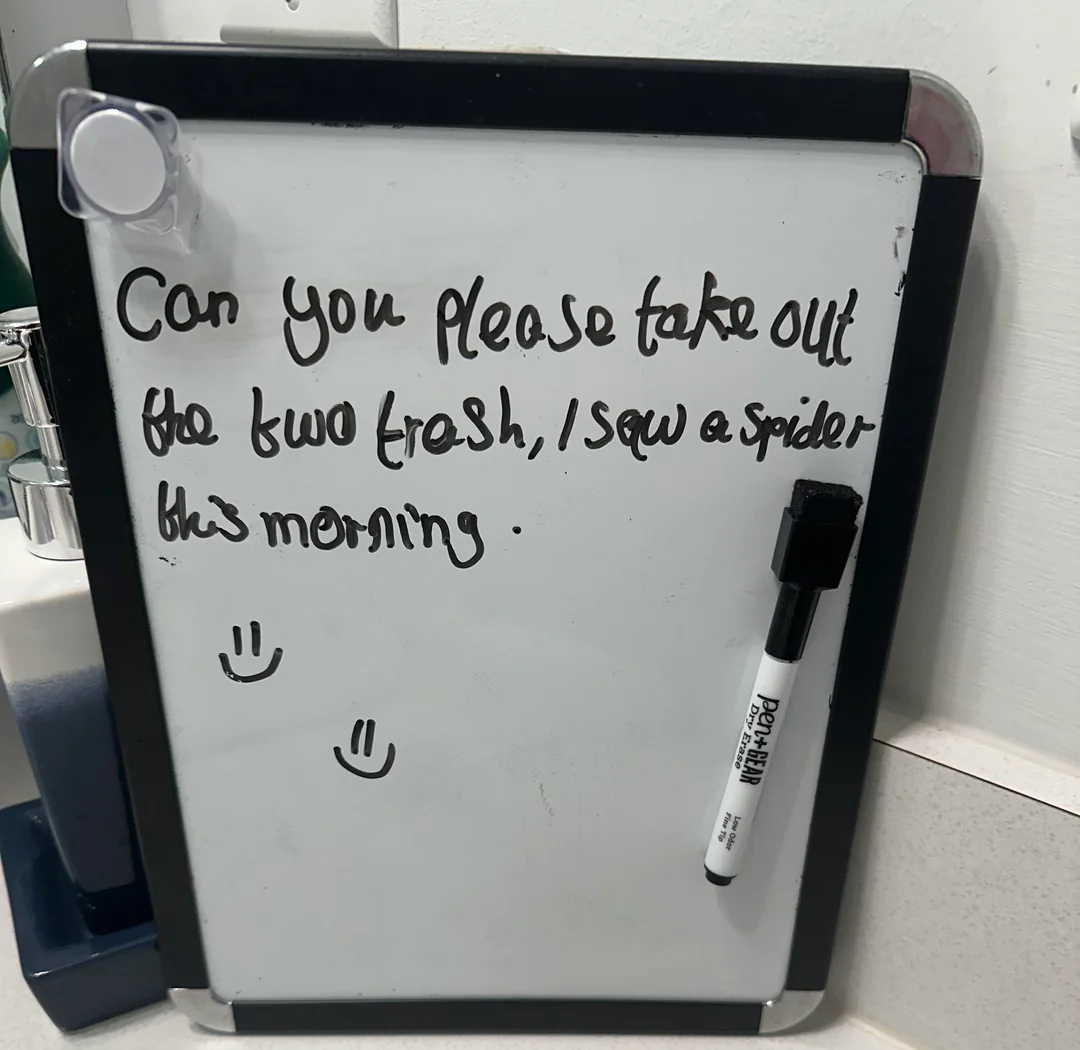 Can you please take out
the two trash, I saw a spider
this morning.
pen+GEAR
Dry Erase
Low Odor
Fine Tip